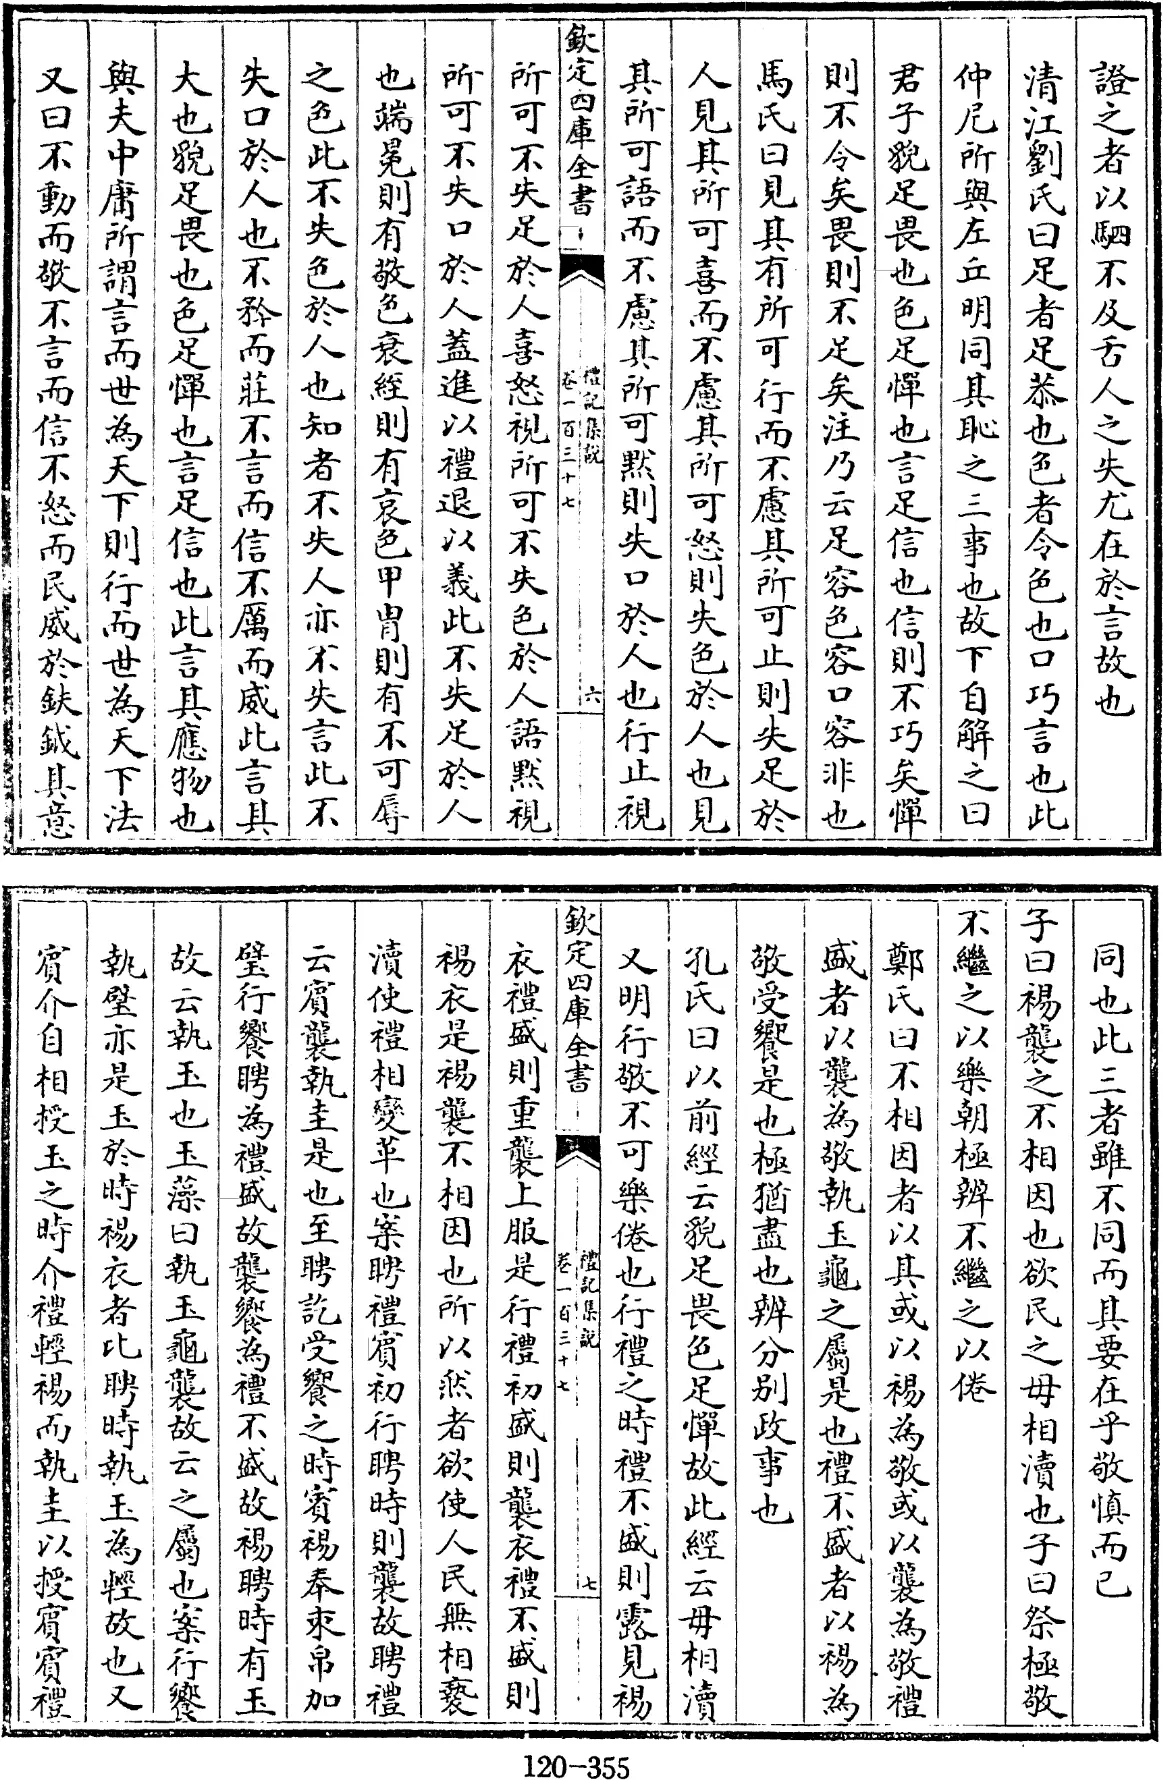 證之者以駟不及舌人之失尤在於言故也
清江劉氏曰足者足恭也色者令色也口巧言也此
仲尼所與左丘明同其恥之三事也故下自解之曰
君子貌足畏也色足憚也言足信也信則不巧矣憚
則不令矣畏則不足矣注乃云足容色容口容非也
馬氏曰見其有所可行而不慮其所可止則失足於
人見其所可喜而不慮其所可怒則失色於人也見
其所可語而不慮其所可黙則失口於人也行止視
欽定四庫全書
禮記集說
卷一百三十七
六
所可不失足於人喜怒視所可不失色於人語黙視
所可不失口於人葢進以禮退以義此不失足於人
也端冕則有敬色衰絰則有哀色甲胄則有不可辱
之色此不失色於人也知者不失人亦不失言此不
失口於人也不矜而莊不言而信不厲而威此言其
大也貌足畏也色足憚也言足信也此言其應物也
與夫中庸所謂言而世為天下則行而世為天下法
又曰不動而敬不言而信不怒而民威於鈇鉞其意
同也此三者雖不同而其要在乎敬慎而已
子曰裼襲之不相因也欲民之毋相瀆也子曰祭極敬
不繼之以樂朝極辨不繼之以倦
鄭氏曰不相因者以其或以裼為敬或以襲為敬禮
盛者以襲為敬執玉龜之屬是也禮不盛者以裼為
敬受饗是也極猶盡也辨分别政事也
孔氏曰以前經云貌足畏色足憚故此經云毋相瀆
又明行敬不可樂倦也行禮之時禮不盛則露見裼
欽定四庫全書
禮記集說
卷一百三十七
七
衣禮盛則重襲上服是行禮初盛則襲衣禮不盛則
裼衣是裼襲不相因也所以然者欲使人民無相褻
瀆使禮相變革也案聘禮賓初行聘時則襲故聘禮
云賓襲執圭是也至聘訖受饗之時賓裼奉束帛加
璧行饗聘為禮盛故襲饗為禮不盛故裼聘時有玉
故云執玉也玉藻曰執玉龜襲故云之屬也案行饗
執璧亦是玉於時裼衣者比聘時執玉為輕故也又
賓介自相授玉之時介禮輕裼而執圭以授賓賓禮
120-355